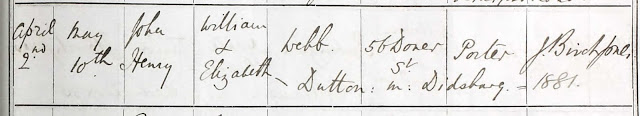 April May John William Webb. 56 Dover Porter J. Birch Jones
2nd 10th Henry & Elizabeth – Dutton: m: Didsbury. = 1881.
St